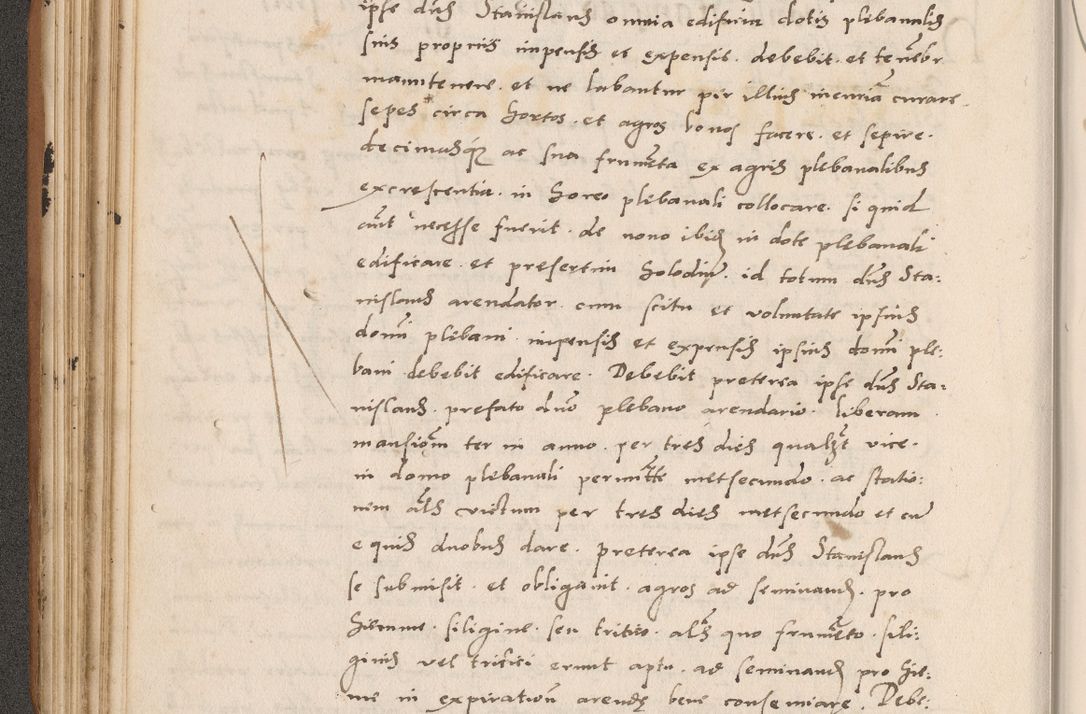 ipse dn̄s Stanislaus omnia edificia dotis plebanalis
suis propriis impensis et expensis. debebit. et tenebr
manutenere. et ne labantur per illius incuriā curare.
sepes circa hortos. et agros bonos facere. et sepire.
decimasq̃ ac sua frumēta ex agris plebanalibus
excrescentia. in horeo plebanali collocare. si quid
aūt necesse fuerit. de nouo ibidē in dote plebanali
edificare. et presertim holodiū. id totum dn̄s Sta:
nislaus arendator. cum scitu et voluntate ipsius
domī plebani. impensis et expensis ipsius domī ple:
bani debebit edificare. Debebit preterea ipse dn̄s Sta:
nislaus. prefato dn̄o plebano arendario. liberam
mansionē ter in anno. per tres dies qualzt vice.
in domo plebanali permitte metsecundo. ac statio:
nem als̄ victum per tres dies metsecundo et cū
equis duobus dare. preterea ipse dn̄s Stanislaus
se submisit. et obligauit. agros ad seminand. pro
hieme. siligine. seu tritico. als̄ quo frumēto. sili:
ginis vel tritici erunt apti. ad seminand pro hie:
me in expirationē arendę bene conseminare. Debe: